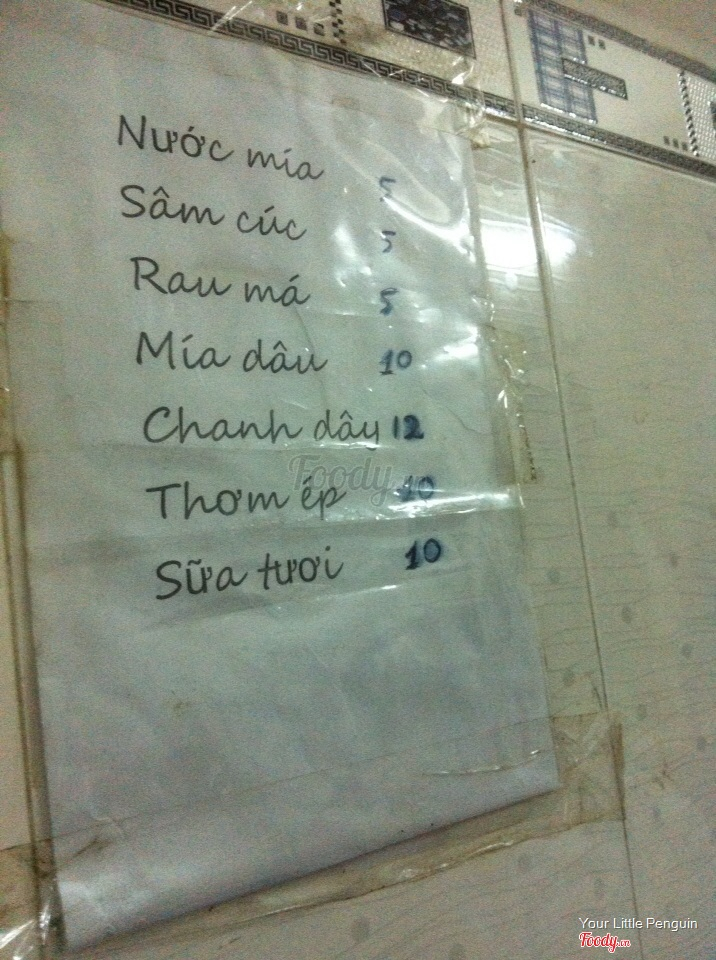 Nước mía 5
Sâm cúc 5
Rau má 5
Mía dâu 10
Chanh dây 12
Thơm ép 10
Sữa tươi 10
Foody.vn
Your Little Penguin
Foody.vn